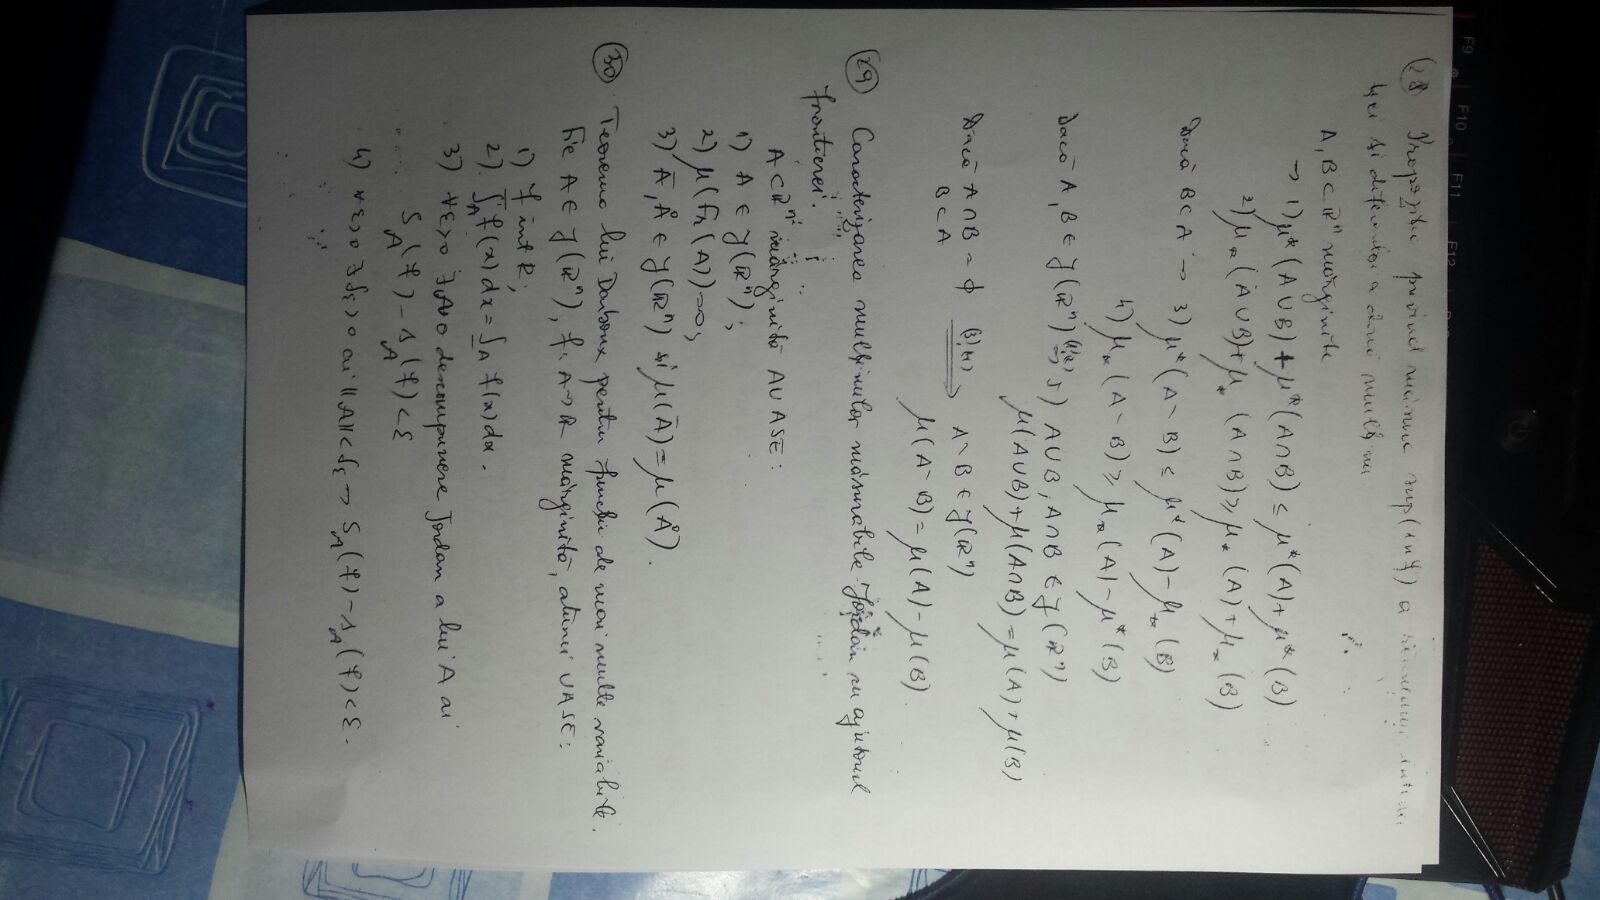 F9 F10 F11 F12
(28) Propoziție privind măsura sup(inf) a reuniunii, inter
ției și diferenței a două mulțimi
A, B ⊂ ℝⁿ mărginite
→ 1) μ*(A∪B) + μ*(A∩B) ≤ μ*(A) + μ*(B)
2) μ_*(A∪B) + μ_*(A∩B) ≥ μ_*(A) + μ_*(B)
Dacă B⊂A → 3) μ*(A∖B) ≤ μ*(A) − μ_*(B)
4) μ_*(A∖B) ≥ μ_*(A) − μ*(B)
Dacă A, B ∈ J(ℝⁿ) ⇒ 5) A∪B, A∩B ∈ J(ℝⁿ)
μ(A∪B) + μ(A∩B) = μ(A) + μ(B)
Dacă A∩B = ϕ (3),(4) ⟹ A∖B ∈ J(ℝⁿ)
B⊂A
μ(A∖B) = μ(A) − μ(B)
(29) Caracterizarea mulțimilor măsurabile Jordan cu ajutorul
frontierei.
A⊂ℝⁿ mărginită AUASE:
1) A ∈ J(ℝⁿ);
2) μ(Fr(A)) = 0;
3) Ā, Å ∈ J(ℝⁿ) și μ(Ā) = μ(Å).
(30) Teorema lui Darboux pentru funcții de mai multe variabile.
Fie A ∈ J(ℝⁿ), f: A→ℝ mărginită, atunci UASE:
1) f int R;
2) ∫̅_A f(x)dx = ∫̲_A f(x)dx.
3) ∀ε>0 ∃ 𝒜 descompunere Jordan a lui A aî
S_𝒜(f) − s_𝒜(f) < ε
4) ∀ε>0 ∃δ_ε>0 aî ‖𝒜‖<δ_ε → S_𝒜(f) − s_𝒜(f) < ε.